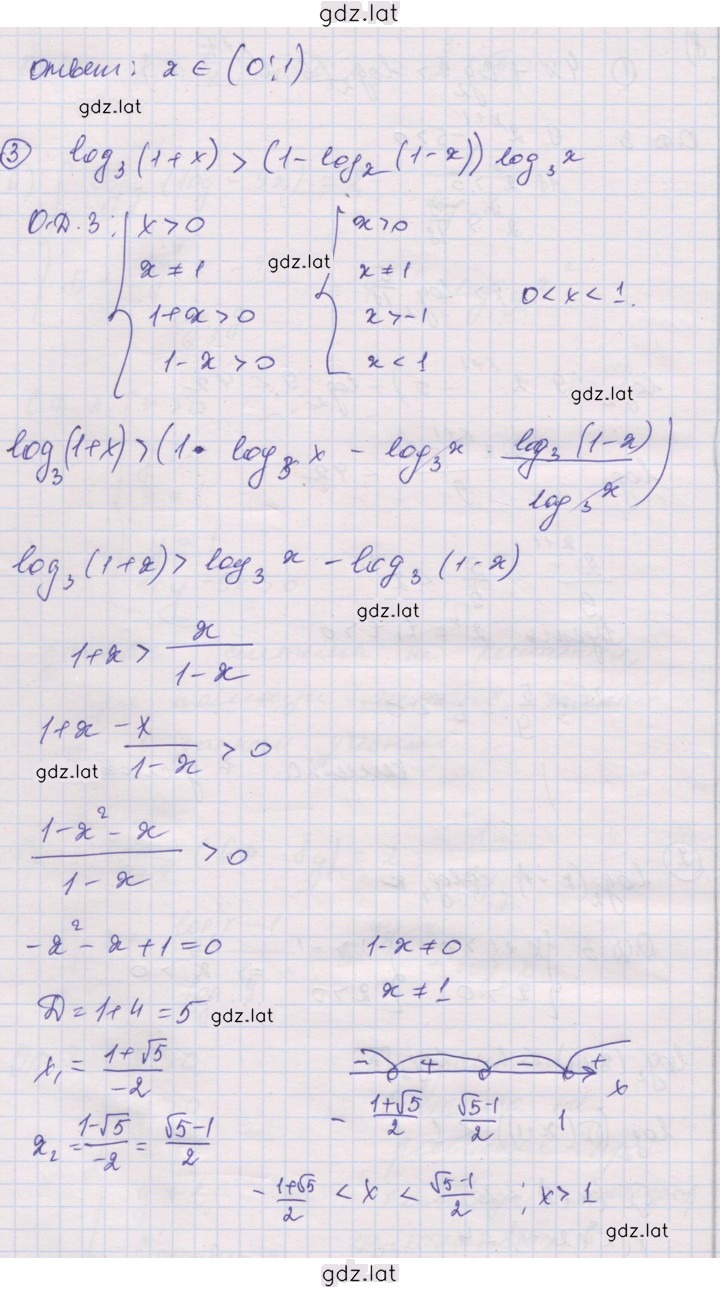 gdz.lat
Ответ: x ∈ (0;1)
gdz.lat
③ log₃(1+x) > (1 - logₓ(1-x)) log₃x
О.Д.З: { x>0 { x>0
x ≠ 1 gdz.lat x ≠ 1
1+x>0 x>-1 0<x<1.
1-x>0 x<1
gdz.lat
log₃(1+x) > (1· log₃x - log₃x · log₃(1-x) / log₃x)
log₃(1+x) > log₃x - log₃(1-x)
gdz.lat
1+x > x / (1-x)
1+x - x / (1-x) > 0
gdz.lat
(1-x²-x) / (1-x) > 0
-x²-x+1=0 1-x≠0
D=1+4=5 gdz.lat x≠1
x₁ = (1+√5) / -2 - + - + x
x₂ = (1-√5) / -2 = (√5-1) / 2 - (1+√5) / 2 (√5-1) / 2 1
- (1+√5) / 2 < x < (√5-1) / 2 ; x>1
gdz.lat
gdz.lat